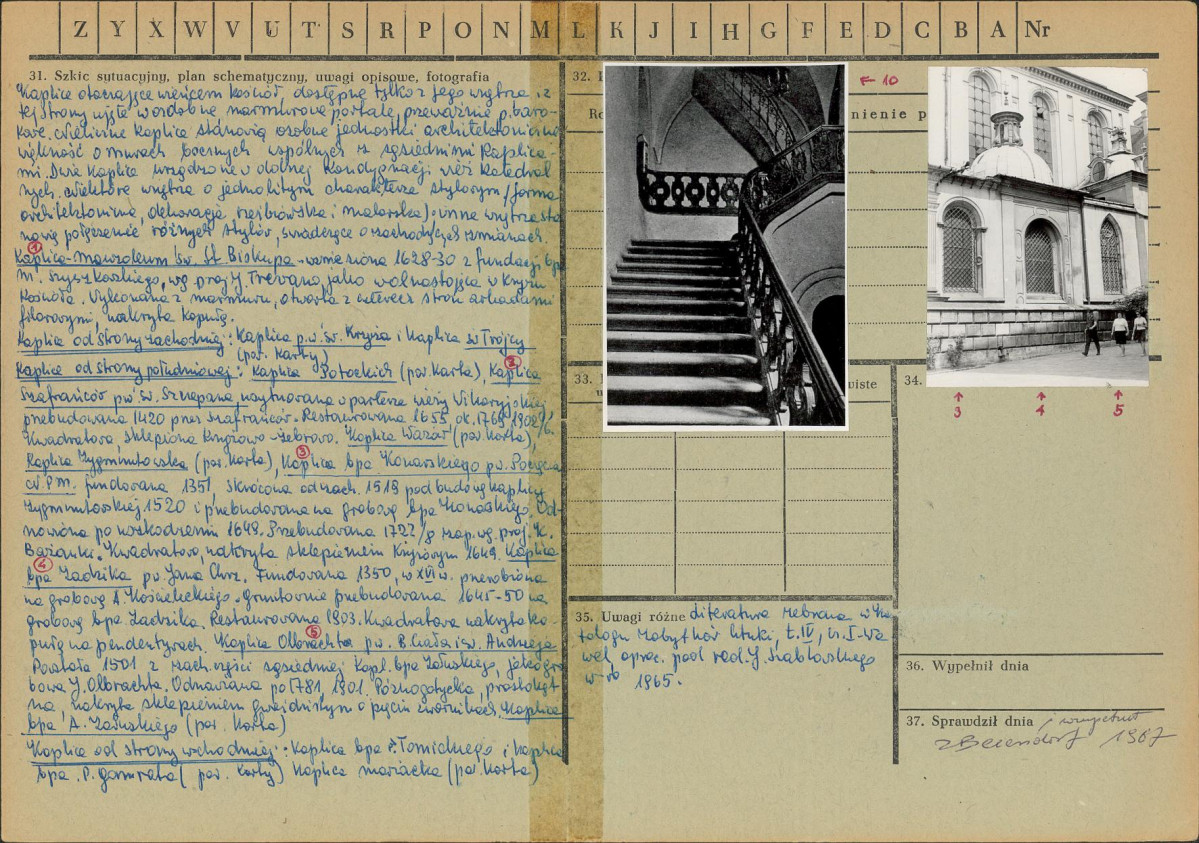 Z Y X W V U T S R P O N M L K J I H G F E D C B A Nr
31. Szkic sytuacyjny, plan schematyczny, uwagi opisowe, fotografia
Kaplice otaczające wieńcem kościół dostępne tylko z jego wnętrza i z
tej strony ujęte w ozdobne marmurowe portale, przeważnie p. baro-
kowe. Nieliczne kaplice stanowią osobne jednostki architektoniczne
większość o murach bocznych wspólnych z sąsiednimi kaplica-
mi. Dwie kaplice urządzone w dolnej kondygnacji wież katedral
nych. Niektóre wnętrza o jednolitym charakterze stylowym /forma
architektoniczna, dekoracja rzeźbiarska i malarska/: inne wnętrza sta
nowią połączenie różnych stylów, świadczące o zachodzących zmianach.
1
Kaplica-Mauzoleum św. St. Biskupa - wzniesiona 1628-30 z fundacji bpa
M. Szyszkowskiego, wg proj. J. Trevano, jako wolnostojąca w krzyżu
kościoła. Wykonana z marmuru, otwarta z czterech stron arkadami
filarowymi, nakryta kopułą.
Kaplice od strony zachodniej: Kaplica p.w. św. Krzyża i Kaplica św Trójcy
(por. Karty)
2
Kaplice od strony południowej: Kaplica Potockich (por. Karta), Kaplica
Szafrańców pw. św. Szczepana usytuowana w parterze wieży Wikaryjskiej
przebudowana 1420 przez Szafrańców. Restaurowana 1655, ok. 1769, 1902/6.
Kwadratowa, sklepiona krzyżowo-żebrowo. Kaplica Wazów (por. Karta),
3
Kaplica Zygmuntowska (por. Karta), Kaplica bpa Konarskiego pw. Poczęcia
NPM. fundowana 1351, skrócona od zach. 1519 pod budowę kaplicy
Zygmuntowskiej 1520 i przebudowana na grobową bpa Konarskiego. Od-
nowiona po uszkodzeniu 1649. Przebudowana 1722/8 zap. wg. proj. K.
Bażanki. Kwadratowa, nakryta sklepieniem krzyżowym 1649. Kaplica
4
bpa Zadzika pw. Jana Chrz. Fundowana 1350, w XVI w. przerobiona
na grobową A. Kościeleckiego. gruntownie przebudowana 1645-50 na
grobową bpa Zadzika. Restaurowana 1903. Kwadratowa nakryta ko-
5
pułą na pendentywach. Kaplica Olbrachta p.w. B. Ciała i św. Andrzeja
Powstała 1501 z zach. części sąsiedniej kapl. bpa Załuskiego, jako gro
bowa J. Olbrachta. Odnawiana po 1781, 1901. Późnogotycka, prostokąt
na, nakryta sklepieniem gwiaździstym o pięciu zwornikach. Kaplica
bpa A. Załuskiego (por. Karta)
Kaplice od strony wschodniej: Kaplica bpa P. Tomickiego i kaplica
bpa. P. Gamrata (por. Karty) Kaplica Mariacka (por. Karta)
32.
← 10
nienie p
33.
wiste
34.
3 4 5
35. Uwagi różne Literatura zebrana w Ka
talogu Zabytków Sztuki, t. IV, cz. I - Wa
wel, oprac. pod red. J. Szablowskiego
1965.
36. Wypełnił dnia
37. Sprawdził dnia
1967